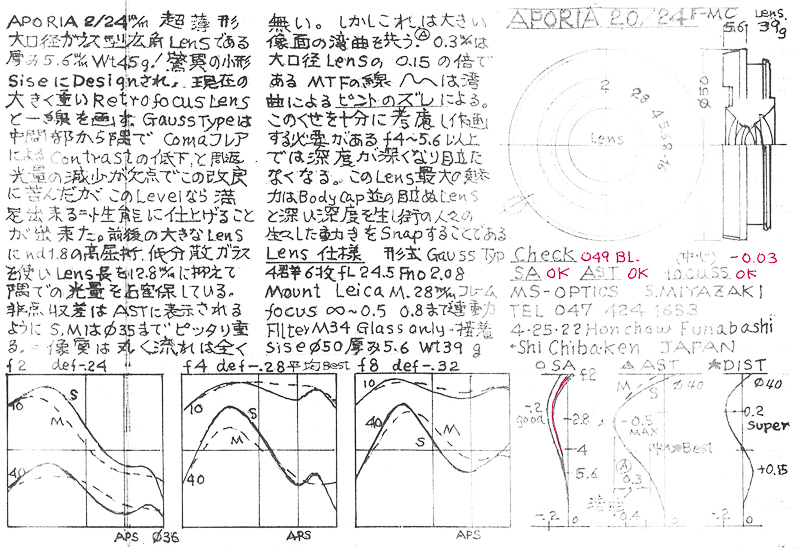 APORIA 2/24m/m 超薄形
大口径ガウス型広角Lensである
厚み5.6m/m Wt45g!驚異の小形
SiseにDesignされ、現在の
大きく重いRetrofocusLens
と一線を画す GaussTypeは
中間部から隅で Comaフレア
によるContrastの低下,と周辺
光量の減少が欠点でこの改良
に苦んだが このLevelなら満
足出来る 性能に仕上げること
が出来た。前後の大きなLens
にnd1.8の高屈折,低分散ガラス
を使いLens長を12.8m/mに抑えて
隅での光量を 確保している。
非点収差はASTに表示される
ようにS.MはØ35までピッタリ重
る。 像変は丸く流れは全く
無い。しかしこれは大きい
像面の湾曲を共う.Ⓐ0.3m/mは
大口径Lensの 0.15の倍で
ある MTFの線 は湾
曲によるピントのズレによる。
このくせを十分に考慮し作画
する必要がある.f4~5.6以上
では深度が深くなり目立た
なくなる。このLens最大の魅
力はBodyCap並の目立ぬLens
と深い深度を生し街の人々の
生々した動きをSnapすることである
Lens仕様 形式GaussTyp
4群6枚 fL24.5 Fno2.08
Mount Leica M. 28m/mフレーム
focus ∞~0.5 0.8まで連動
Filter M34 Glass only-接着
Sise Ø50 厚み5.6 Wt39g
APORIA 2.0/24 F-MC
Lens.
39g
5.6
Ø50
2
2.8
4
5.6
8
16
Lens
Check 049 BL. (中心) -0.03
SA OK AST OK focuss OK
MS-OPTICS S.MIYAZAKI
TEL 047 424 1653
4-25-22 Honchow Funabashi
Shi Chibaken JAPAN
f2 def-24
10
S
M
40
APS Ø36
f4 def-.28 平均Best
10
S
M
40
APS
f8 def-.32
10
40
M
S
APS
○SA △AST ★DIST
f2
-.2
good
2.8
4
5.6
-.2
0
M S Ø40
-0.5
MAX
Best
Ⓐ
0.3
-0.4
0
Ø40
-0.2
Super
+0.15
-.2
0